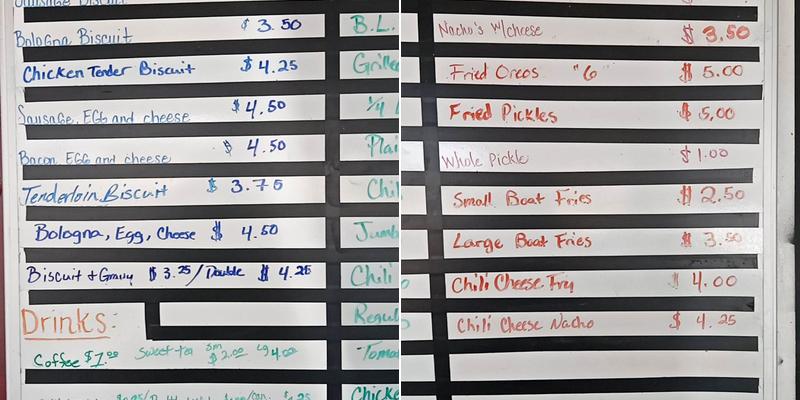 Sausage Biscuit
Bologna Biscuit $3.50
Chicken Tender Biscuit $4.25
Sausage, EGG and cheese $4.50
Bacon, EGG and cheese $4.50
Tenderloin Biscuit $3.75
Bologna, Egg, Cheese $4.50
Biscuit & Gravy $3.25/Double $4.25
Drinks:
Coffee $1.00 Sweet tea sm $2.00 Lg 4.00
B.L.
Grille
1/4
Plai
Chil
Jumb
Chili
Regul
Toma
Chicke
Nacho's W/cheese $3.50
Fried Oreos "6" $5.00
Fried Pickles $5.00
Whole Pickle $1.00
Small Boat Fries $2.50
Large Boat Fries $3.50
Chili Cheese Fry $4.00
Chili Cheese Nacho $4.25